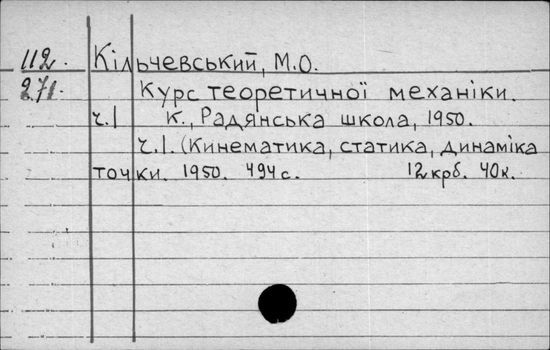 112. Кільчевський, М.О.
271. Курс теоретичної механіки.
ч.1 К., Радянська школа, 1950.
ч.1. (Кинематика, статика, динаміка
точки. 1950. 494 с. 12 крб. 40 к.